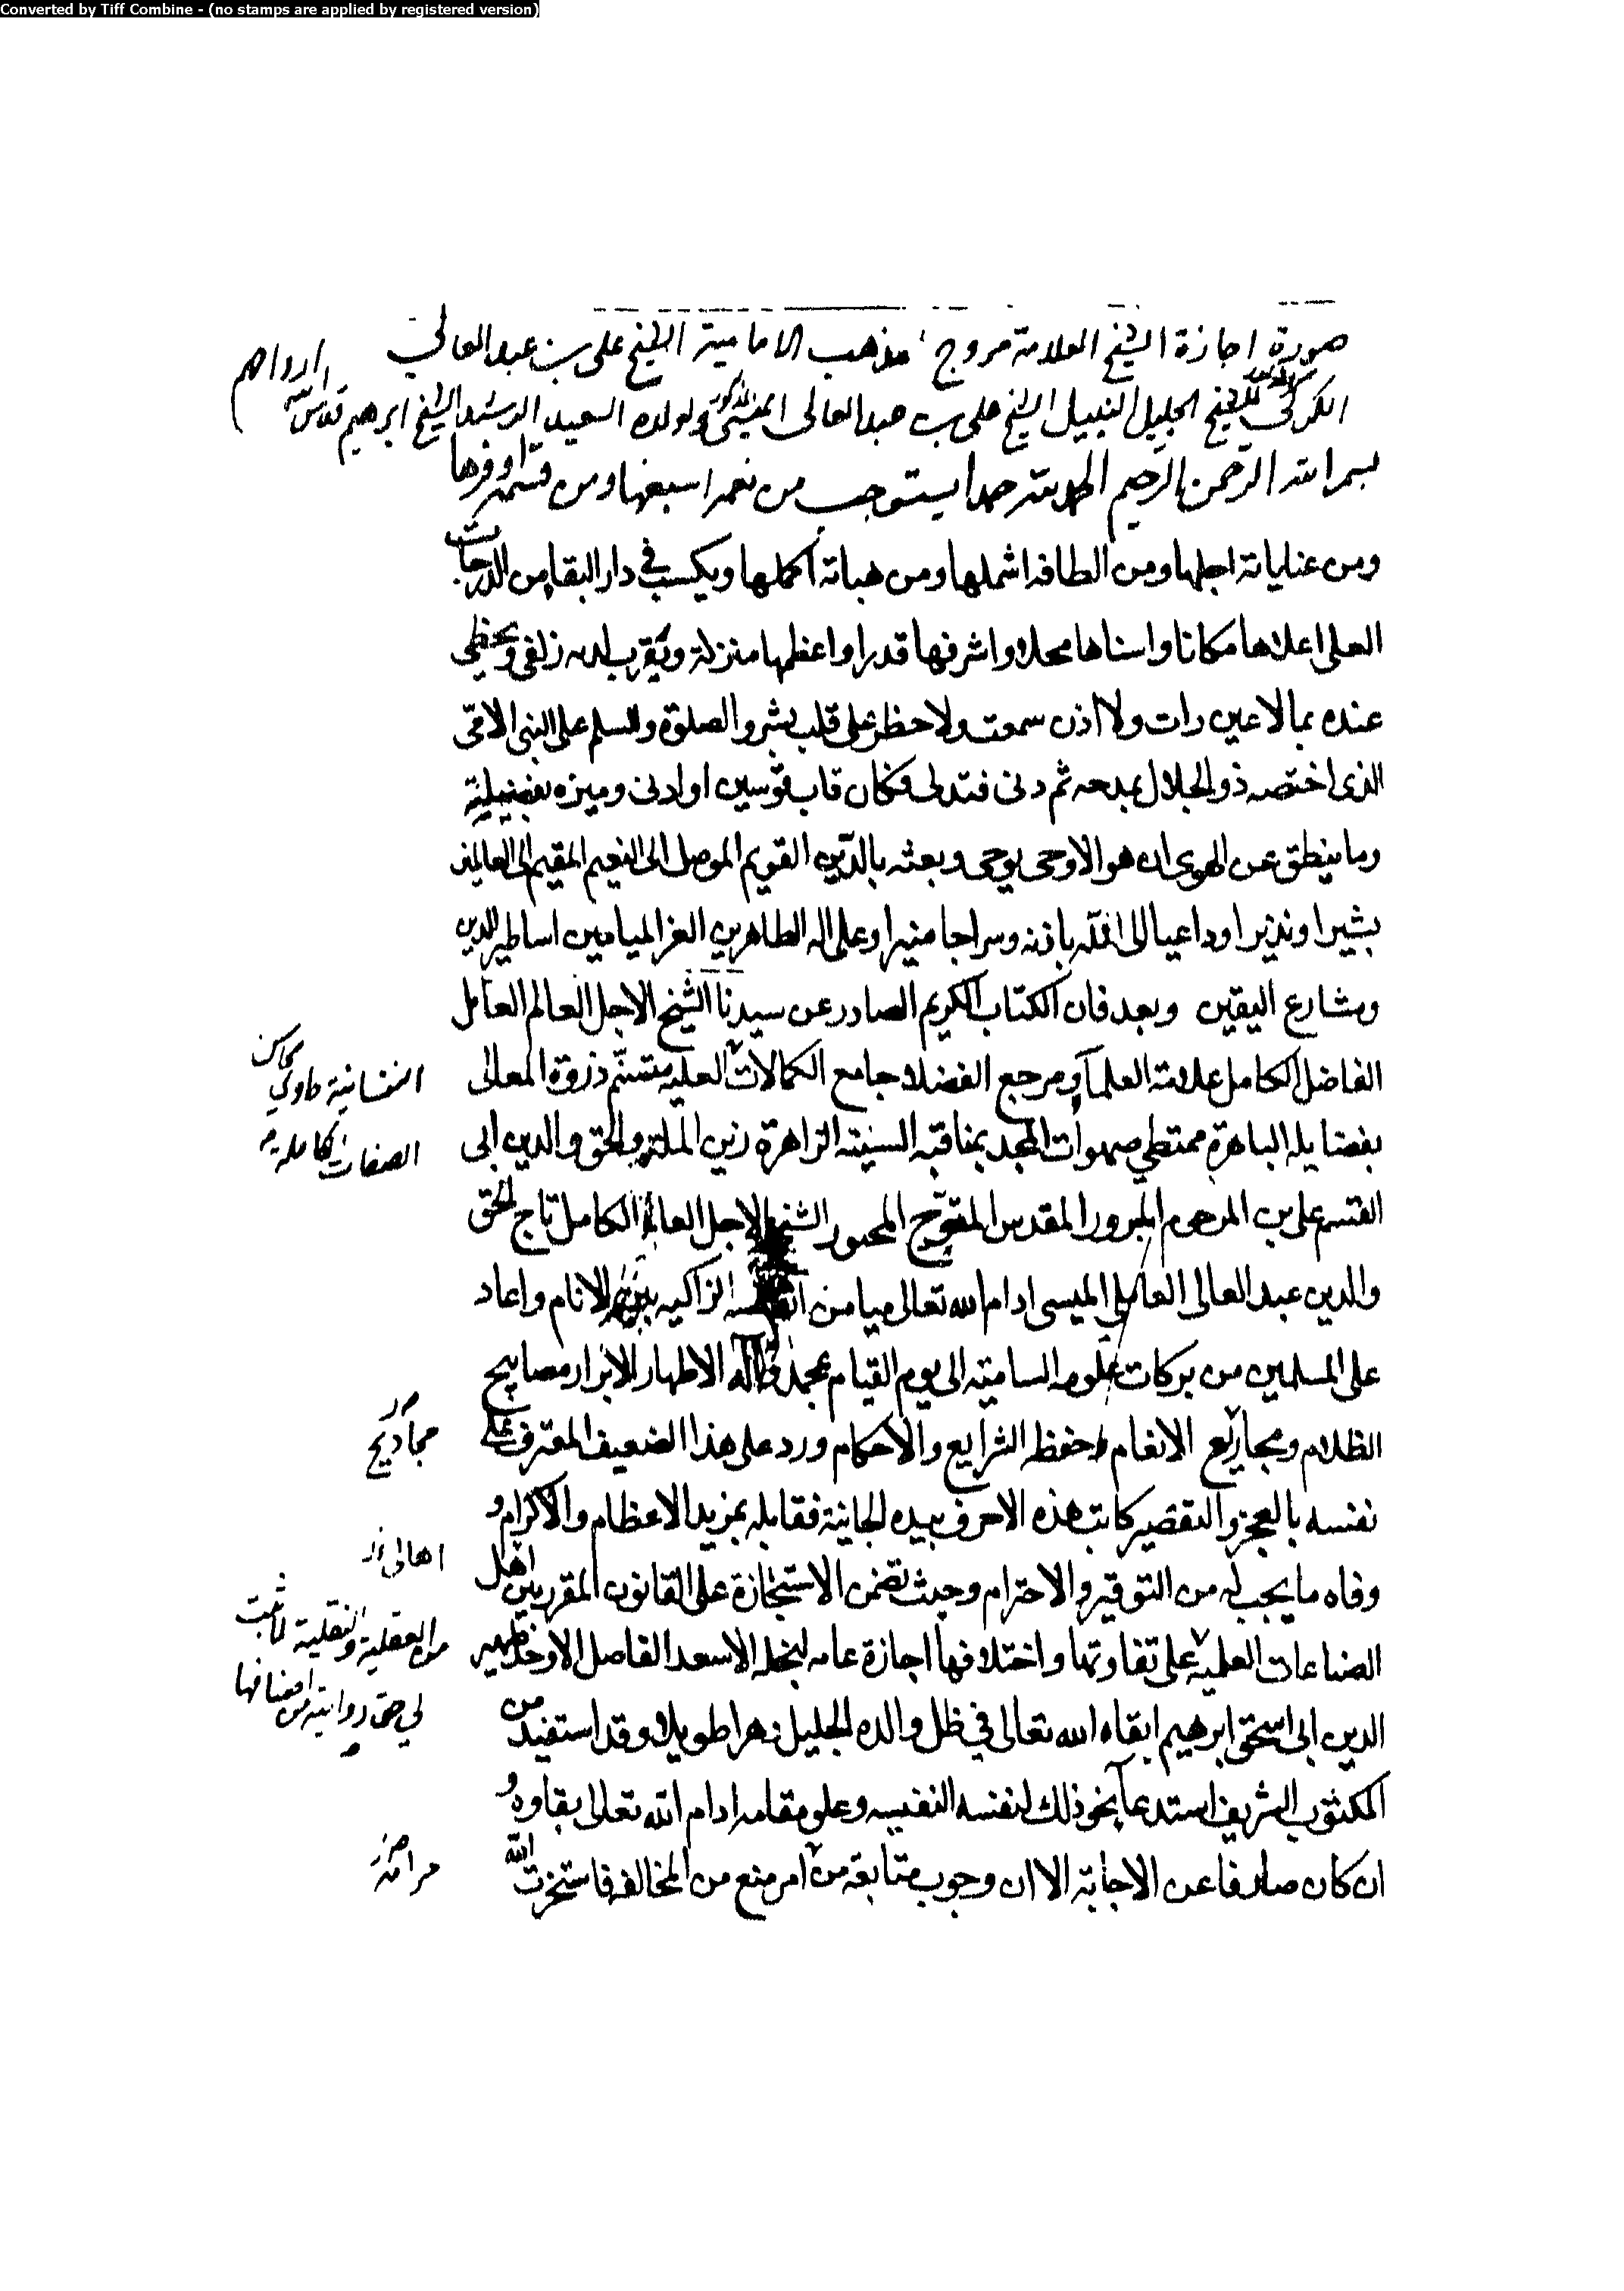 Converted by Tiff Combine - (no stamps are applied by registered version)
صورة اجازة الشيخ العلامة مروج مذهب الامامية الشيخ على بن عبد العالي
الكركى للشيخ الجليل النبيل الشيخ على بن عبد العالى الميسى ولولده السعيد الرشيد الشيخ ابرهيم قدس الله ارواحهم
بسم الله الرحمن الرحيم الحمد لله حمدا يستوجب من نعمه اسبغها ومن قسمه اوفرها
ومن عناياته اجلها ومن الطافه اشملها ومن هباته اكملها ويكسب في دار البقا من الدرجات
العلى اعلاها مكانا واسناها محلا واشرفها قدرا واعظمها منزلة ويقرب لديه زلفى ويحظي
عنده بما لا عين رات ولا اذن سمعت ولا خطر على قلب بشر والصلوة والسلم على النبى الامى
الذى اختصه ذو الجلال بمدحه ثم دنى فتدلى فكان قاب قوسين او ادنى وميزه بفضيلة
وما ينطق عن الهوى ان هو الا وحى يوحى وبعثه بالدين القويم الموصل الى النعيم المقيم الى العالمين
بشيرا ونذيرا وداعيا الى الله باذنه وسراجا منيرا وعلى اله الطاهرين الغر الميامين اساطير الدين
ومشارع اليقين وبعد فان الكتاب الكريم الصادر عن سيدنا الشيخ الاجل العالم العامل
الفاضل الكامل علامة العلما ومرجع الفضلا جامع الكمالات العلية متسنم ذروة المعالى
محاسن
النفسانية حاوي
الصفات الكاملة
بفضايله الباهرة ممتطي صهوات المجد بمناقبه السنية الزاهرة زين الملة والحق والدين ابى
القسم على بن المرحوم المبرور المقدس المتوج المحبور الشيخ الاجل العالم الكامل تاج الحق
والدين عبد العالى العاملى الميسى ادام الله تعالى ميامن انفاسه الزاكيه بين الانام واعاد
على المسلمين من بركات علومه السامية الى يوم القيام بمحمد واله الاطهار الابرار مصابيح
الظلام ومجاريع الانعام وحفظة الشرايع والاحكام ورد على هذا الضعيف المعترف على
مجاديح
نفسه بالعجز والتقصير كاتب هذه الاحرف بيده الجانية فقابله بمزيد الاعظام والاكرام و
وفاه ما يجب له من التوقير والاحترام وحيث تضمن الاستجازة على القانون المقرر بين اهل
اهالى
الصناعات العلمية على تفاوتها واختلافها اجازة عامه لنجله الاسعد الفاضل الاوحد ظهير
العقلية والنقلية لما ثبت
لي حق روايته من اصنافها
الدين ابى اسحق ابرهيم ابقاه الله تعالى في ظل والده الجليل دهرا طويلا وقد استفيد من
المكتوب الشريف استدعا نحو ذلك لنفسه النفيسه وعلو مقامه ادام الله تعالى بقاوه و
ان كان صارفا عن الاجابة الا ان وجوب متابعة من امر منع من المخالفه فاستخرت الله